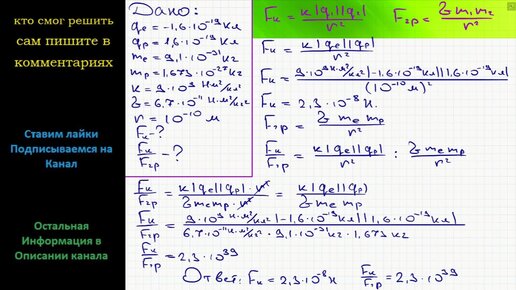 кто смог решить
сам пишите в
комментариях
Ставим лайки
Подписываемся на
Канал
Остальная
Информация в
Описании канала
Дано:
qe = -1,6·10⁻¹⁹ Кл
qp = 1,6·10⁻¹⁹ Кл
me = 9,1·10⁻³¹ кг
mp = 1,673·10⁻²⁷ кг
K = 9·10⁹ Н·м²/Кл²
G = 6.7·10⁻¹¹ Н·м²/кг²
r = 10⁻¹⁰ м
Fк - ?
Fк/Fгр - ?
Fк = K|q₁||q₂|/r² Fгр = G m₁m₂/r²
Fк = K|qe||qp|/r²
Fк = 9·10⁹ Н·м²/Кл²|-1,6·10⁻¹⁹ Кл||1,6·10⁻¹⁹ Кл|/(10⁻¹⁰ м)²
Fк = 2,3·10⁻⁸ Н.
Fгр = G me mp/r²
Fк/Fгр = K|qe||qp|/r² : G me mp/r²
Fк/Fгр = K|qe||qp|·r²/G me mp·r² = K|qe||qp|/G me mp
Fк/Fгр = 9·10⁹ Н·м²/Кл²|-1,6·10⁻¹⁹ Кл||1,6·10⁻¹⁹ Кл|/6.7·10⁻¹¹ Н·м²/кг²·9,1·10⁻³¹ кг·1,673 кг
Fк/Fгр = 2,3·10³⁹
Ответ: Fк = 2,3·10⁻⁸ Н Fк/Fгр = 2,3·10³⁹